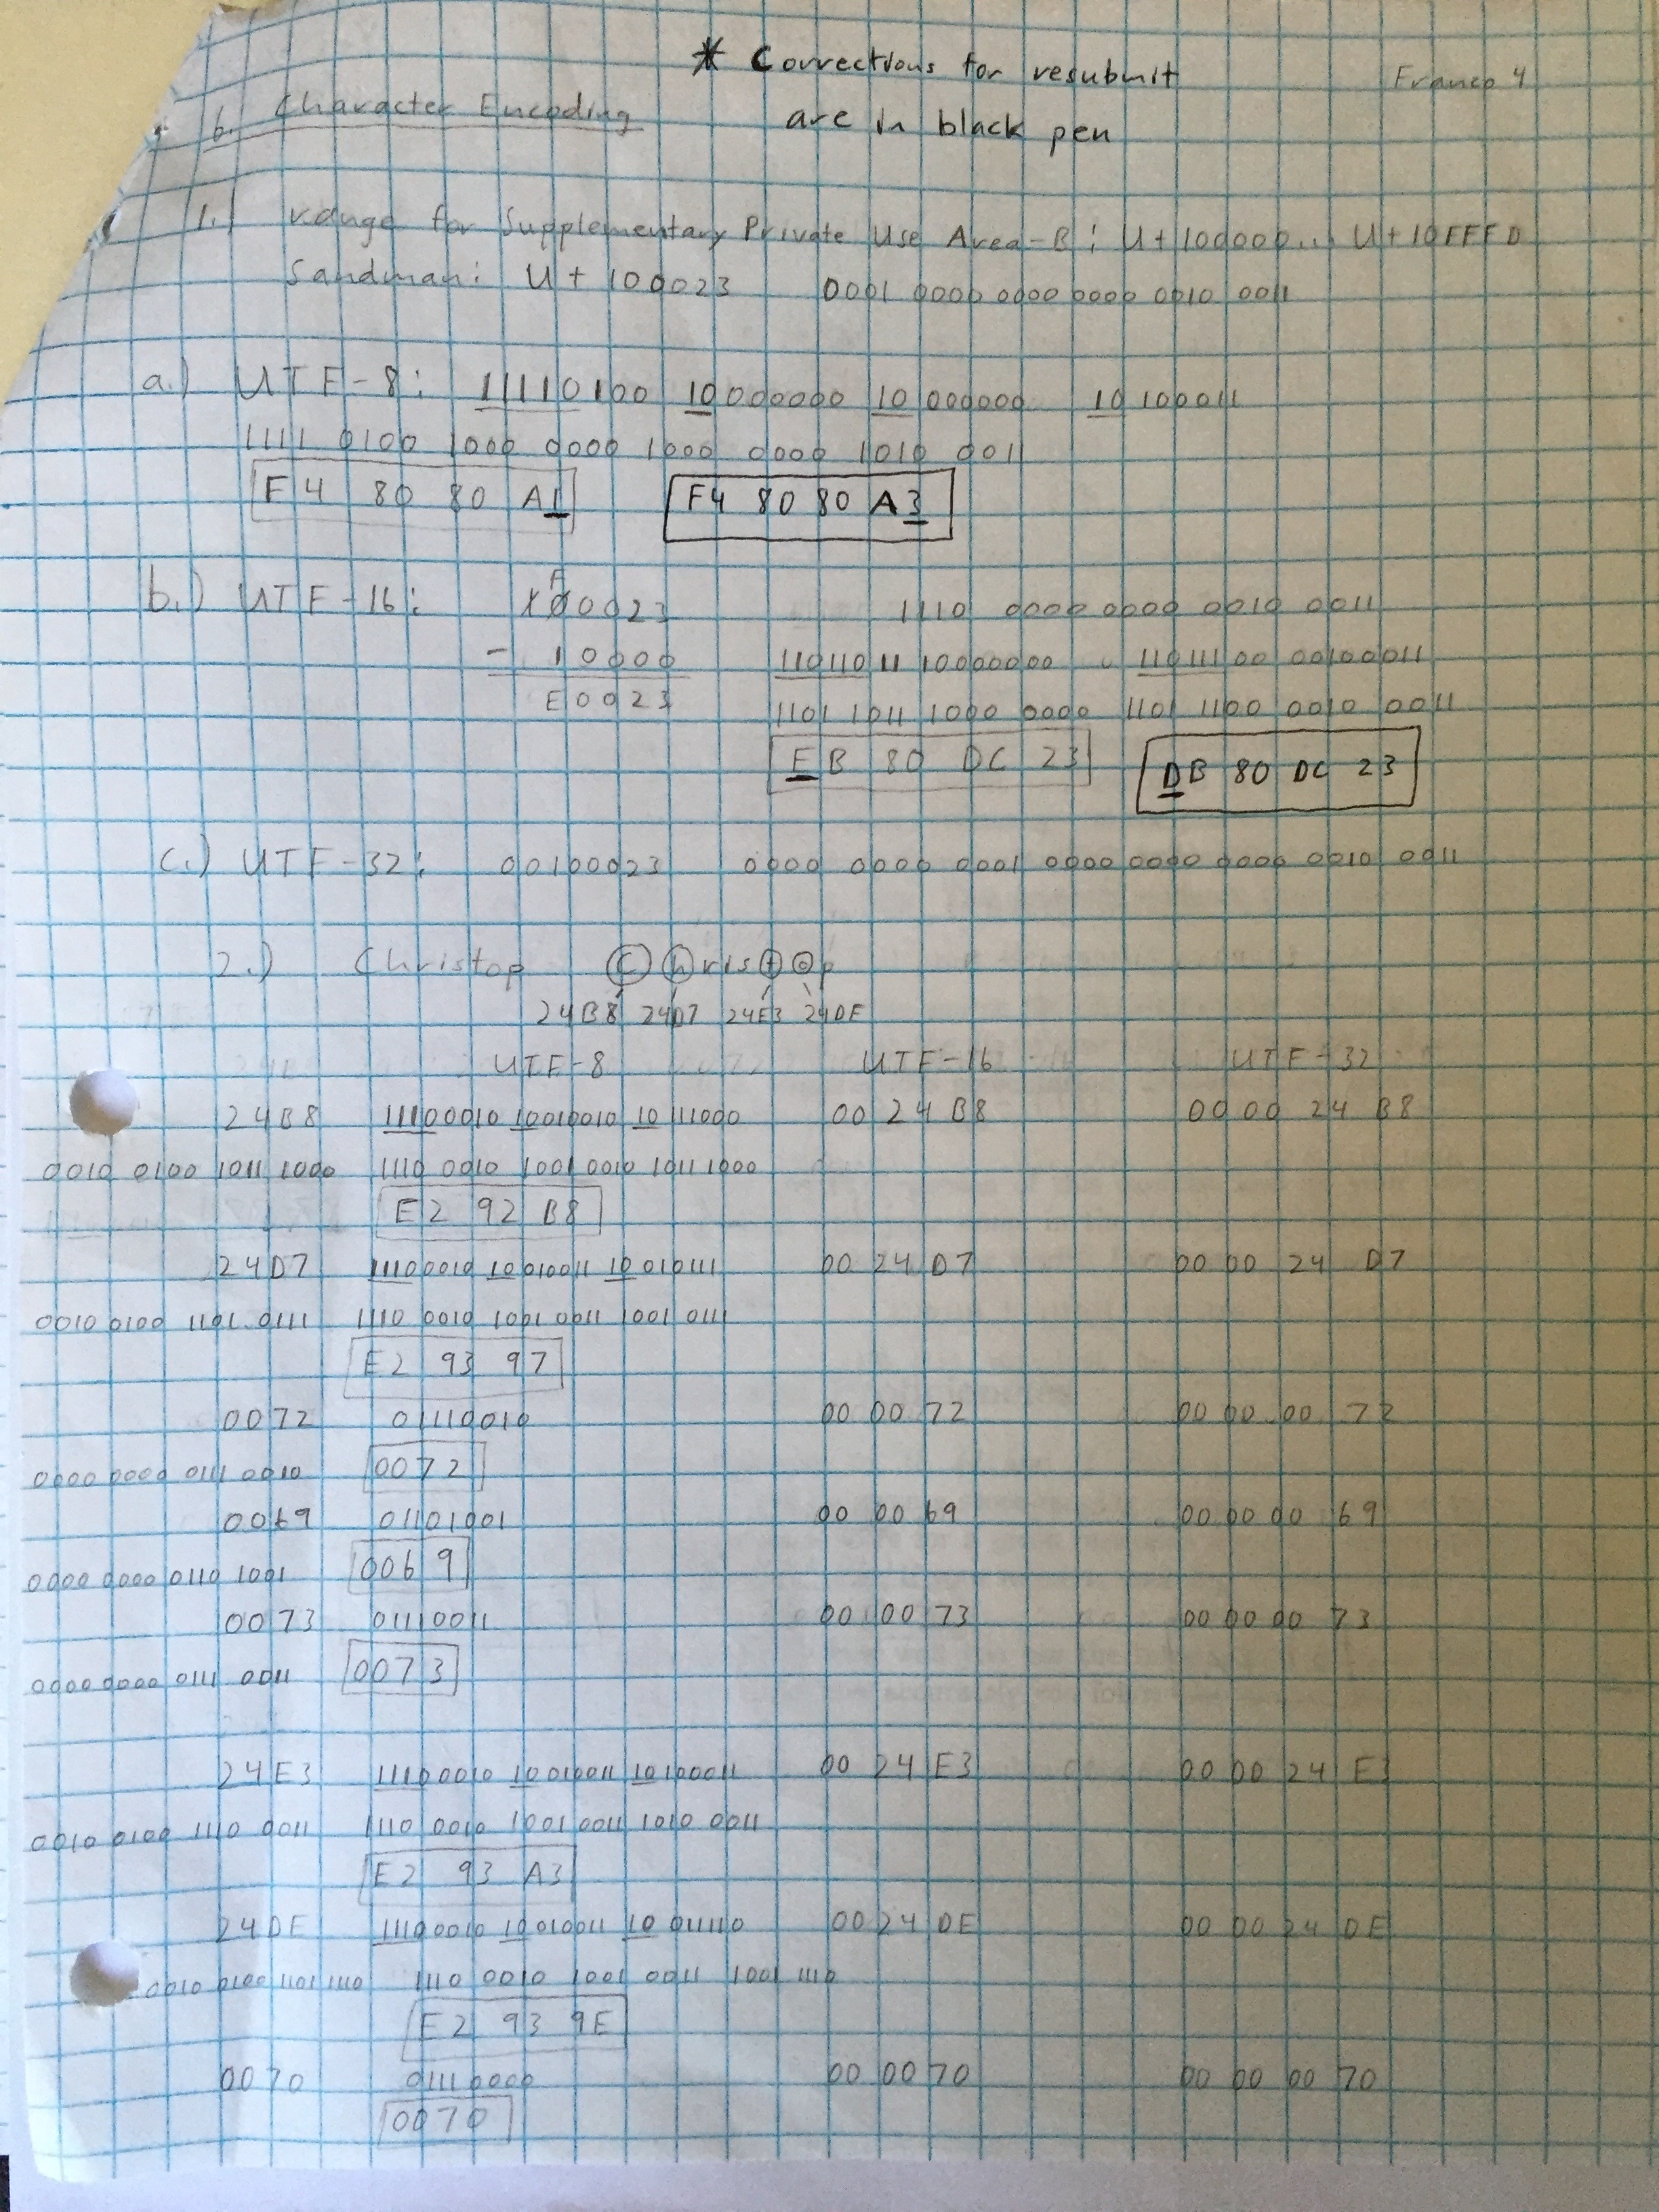 * Corrections for resubmit
are in black pen
Franco 4
6. Character Encoding
1.) range for Supplementary Private Use Area-B: U+100000... U+10FFFD
Sandman: U+100023 0001 0000 0000 0000 0010 0011
a.) UTF-8: 11110100 10000000 10000000 10100011
1111 0100 1000 0000 1000 0000 1010 0011
F4 80 80 A1 F4 80 80 A3
b.) UTF-16: F
100023 1110 0000 0000 0010 0011
- 10000 11011011 10000000 11011100 00100011
E0023 1101 1011 1000 0000 1101 1100 0010 0011
EB 80 DC 23 DB 80 DC 23
c.) UTF-32: 00100023 0000 0000 0001 0000 0000 0000 0010 0011
2.) Christop Ⓒⓗrisⓣⓞp
24B8 24D7 24E3 24DE
UTF-8 UTF-16 UTF-32
24B8 11100010 10010010 10111000 00 24 B8 00 00 24 B8
0010 0100 1011 1000 1110 0010 1001 0010 1011 1000
E2 92 B8
24D7 11100010 10010011 10010111 00 24 D7 00 00 24 D7
0010 0100 1101 0111 1110 0010 1001 0011 1001 0111
E2 93 97
0072 01110010 00 00 72 00 00 00 72
0000 0000 0111 0010 0072
0069 01101001 00 00 69 00 00 00 69
0000 0000 0110 1001 0069
0073 01110011 00 00 73 00 00 00 73
0000 0000 0111 0011 0073
24E3 11100010 10010011 10100011 00 24 E3 00 00 24 E3
0010 0100 1110 0011 1110 0010 1001 0011 1010 0011
E2 93 A3
24DE 11100010 10010011 10011110 00 24 DE 00 00 24 DE
0010 0100 1101 1110 1110 0010 1001 0011 1001 1110
E2 93 9E
0070 01110000 00 00 70 00 00 00 70
0070